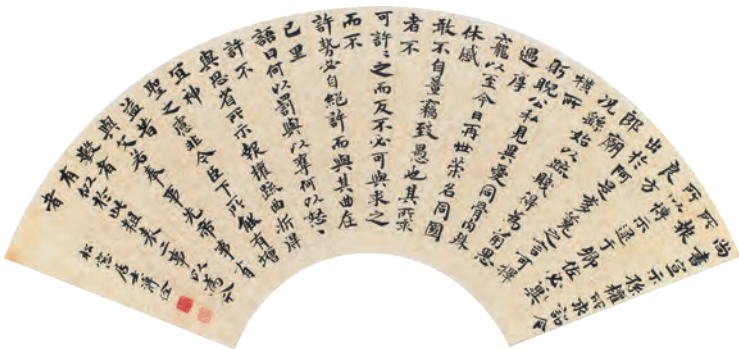 尚書宣示孫權所求詔令
所報
所以博示逮于卿佐必冀
良方
出於阿是芻蕘之言可擇
郎廟
況繇始以疏賤得為前恩
橫所
盱睨公私見異愛同骨肉殊
遇厚
寵以至今日再世榮名同國
休慼
敢不自量竊致愚也其所求
者不
可許〻之而反不必可與求之
而不
許勢必自絕許而與其曲在
已里
語曰何以罰與以奪何以怒〻
許不
與思省所示報權疏曲折得
宜神
聖之慮非今臣下所能有增
益昔
與文若奉事先帝事有
數者
有似於此粗表二事以為今
者
松窗居士溥伒